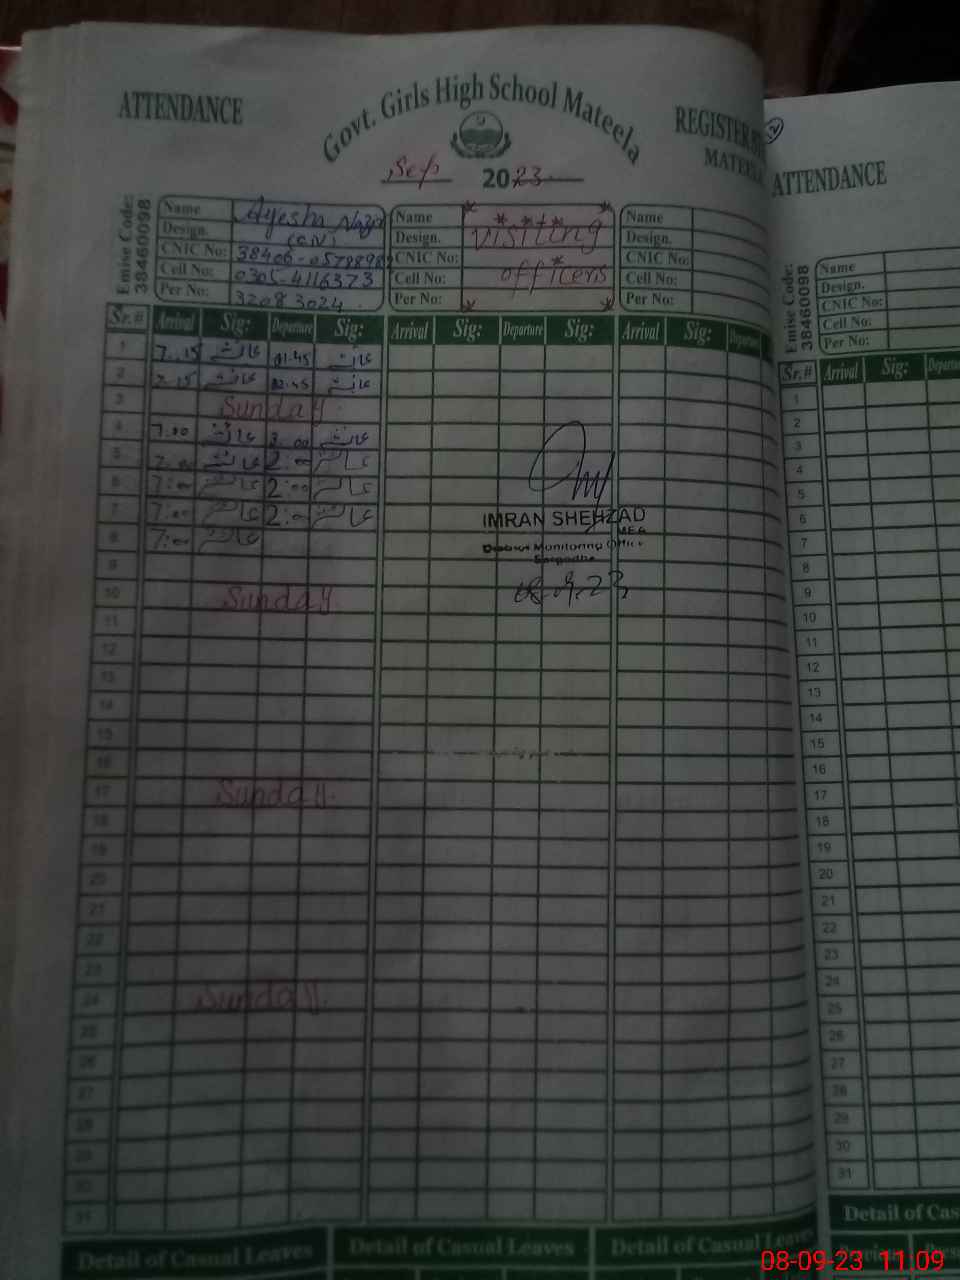 ATTENDANCE
Govt. Girls High School Mateela
REGISTER
MATEELA
Sep 2023
Emise Code: 38460098
Name Ayesha Nazir
Design. (C.IV)
CNIC No:
Cell No: 0305-4116373
Per No: 32083024
Name
Design. Visiting
CNIC No:
Cell No: officers
Per No:
Name
Design.
CNIC No:
Cell No:
Per No:
Sr.# Arrival Sig: Departure Sig: Arrival Sig: Departure Sig: Arrival Sig: Departure
1 7.15 عائشہ 11.45 عائشہ
2 7.15 عائشہ 12.45 عائشہ
3 Sunday
4 7:00 عائشہ 2:00 عائشہ
5 7:00 عائشہ 2:00 عائشہ
6 7:00 عائشہ 2:00 عائشہ
7 7:00 عائشہ 2:00 عائشہ
8 7:00 عائشہ
9
10 Sunday
11
12
13
14
15
16
17 Sunday
18
19
20
21
22
23
24 Sunday
25
26
27
28
29
30
31
IMRAN SHEHZAD
M.E.A
District Monitoring Office
Sargodha
08.9.23
Detail of Casual Leaves Detail of Casual Leaves Detail of Casual Leaves
2
ATTENDANCE
Emise Code: 38460098
Name
Design.
CNIC No:
Cell No:
Per No:
Sr.# Arrival Sig: Departure
1
2
3
4
5
6
7
8
9
10
11
12
13
14
15
16
17
18
19
20
21
22
23
24
25
26
27
28
29
30
31
Detail of Cas
08-09-23 11:09